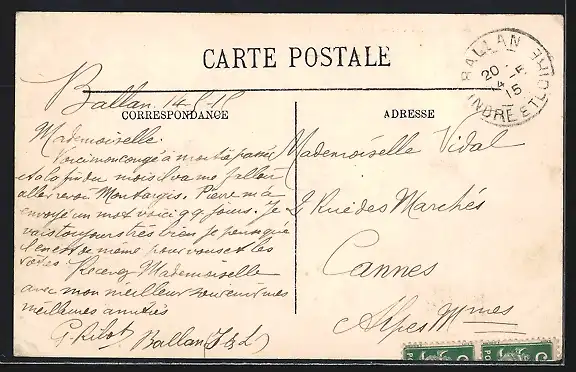 CARTE POSTALE
BALLAN
20
14 -5
15
INDRE ET LOIRE
Ballan. 14-5-15
CORRESPONDANCE
ADRESSE
Mademoiselle.
Voici mon congé à moitié passé
et a la fin du mois il va me falloir
aller revoir Montargis. Pierre m'a
envoyé un mot voici qq jours. Je
vais toujours très bien je pense que
il en est de même pour vous et les
vôtres. Recevez Mademoiselle
avec mon meilleur souvenir mes
meilleures amitiés
Ballan (I & L)
Mademoiselle Vidal
Rue des Marchés
Cannes
Alpes Mmes